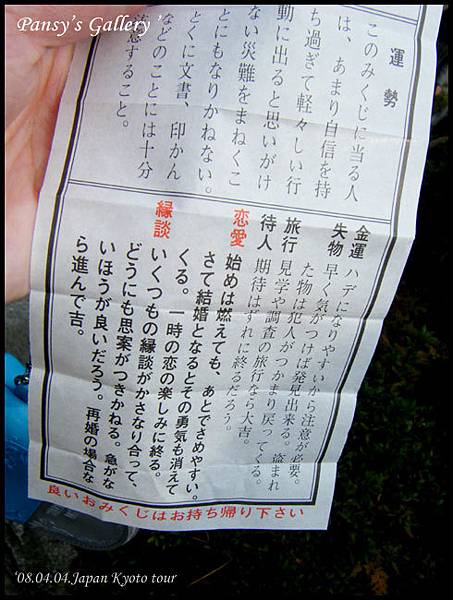 Pansy's Gallery '
運勢
このみくじに当る人
は、あまり自信を持
ち過ぎて軽々しい行
動に出ると思いがけ
ない災難をまねくこ
とにもなりかねない。
とくに文書、印かん
などのことには十分
すること。
金運 ハデになりやすいから注意が必要。
失物 早く気がつけば発見出来る。盗まれ
た物は犯人がつかまり戻ってくる。
旅行 見学や調査の旅行なら大吉。
待人 期待はずれに終るだろう。
恋愛 始めは燃えても、あとでさめやすい。
さて結婚となるとその勇気も消えて
くる。一時の恋の楽しみに終る。
縁談 いくつもの縁談がかさなり合って、
どうにも思案がつきかねる。急がな
いほうが良いだろう。再婚の場合な
ら進んで吉。
良いおみくじはお持ち帰り下さい
'08.04.04.Japan Kyoto tour